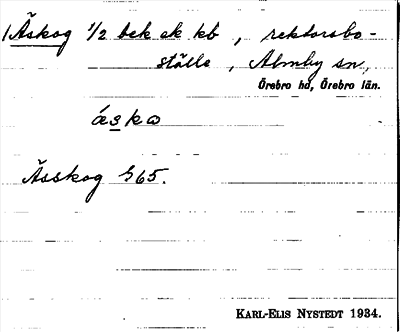 1/Äskog 1/2 bek ek kb, rektorsbo-
ställe, Almby sn,
Örebro hd, Örebro län.
áska
Ässkog § 65.
KARL-ELIS NYSTEDT 1934.